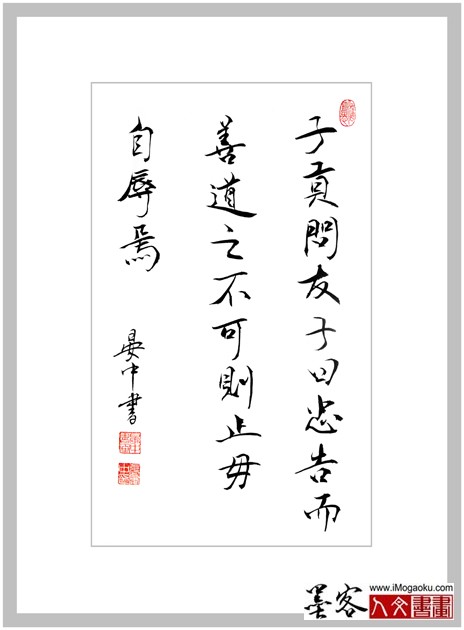 子貢問友子曰忠告而
善道之不可則止毋
自辱焉
晏中書
墨客
www.iMogaoku.com
人文書畫